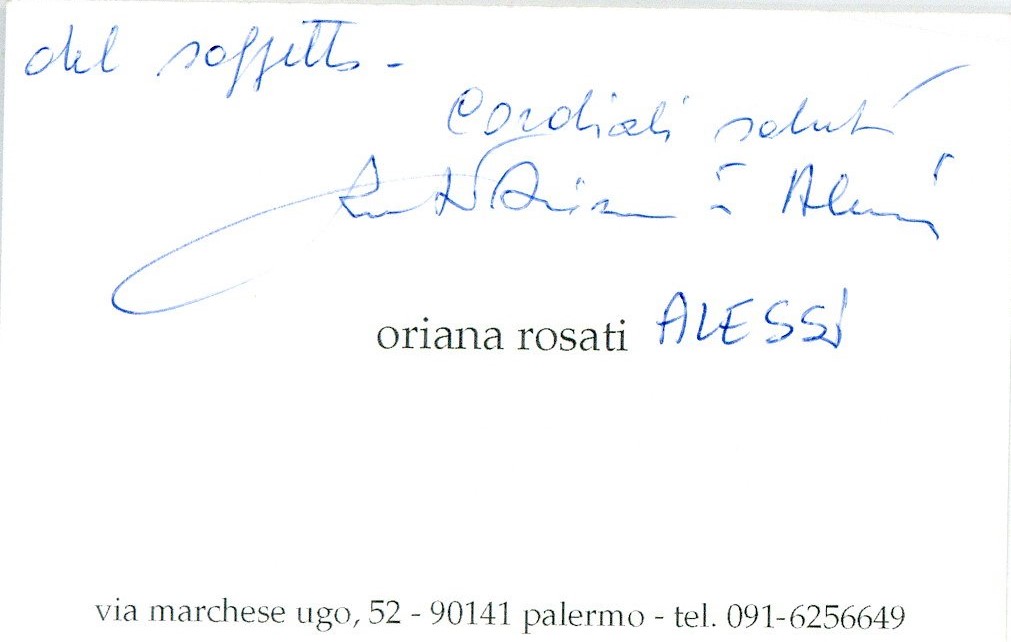 del soffitto -
Cordiali saluti
Oriana
oriana rosati ALESSI
via marchese ugo, 52 - 90141 palermo - tel. 091-6256649